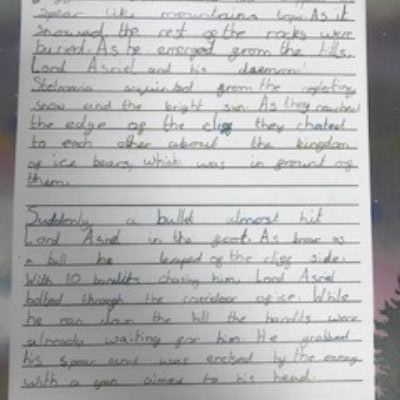 spear like mountains tops. As it
snowed the rest of the rocks were
buried. As he emerged from the hills,
Lord Asriel and his daemon
Stelmaria squinted from the reflecting
snow and the bright sun. As they reached
the edge of the cliff they chated
to each other about the kingdom
of ice bears, which was in front of
them.
Suddenly a bullet almost hit
Lord Asriel in the foot. As brave as
a bull he leaped of the cliff side.
With 10 bandits chasing him, Lord Asriel
bolted through the corridoor of ice. While
he ran down the hill the bandits were
already waiting for him. He grabbed
his spear and was by the enemy
with a gun aimed to his head.